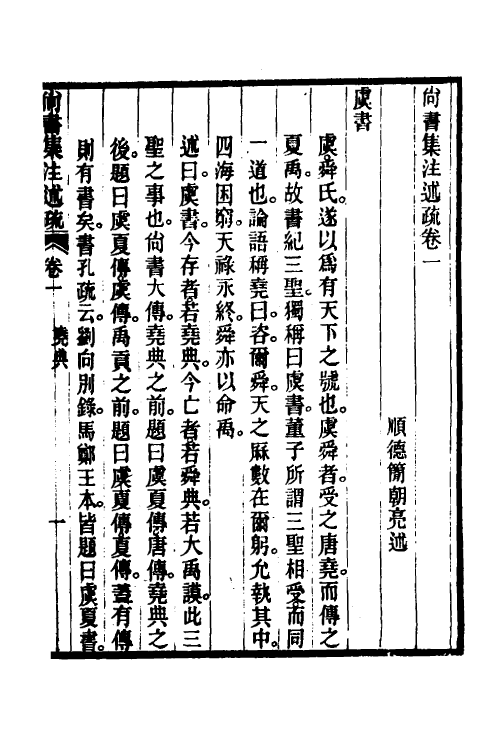 尙書集注述疏卷一
順德簡朝亮述
虞書
虞舜氏。遂以爲有天下之號也。虞舜者。受之唐堯。而傳之
夏禹。故書紀三聖。獨稱曰虞書。董子所謂三聖相受而同
一道也。論語稱堯曰。咨。爾舜。天之厤數在爾躬。允執其中。
四海困窮。天祿永終。舜亦以命禹。
述曰。虞書。今存者。若堯典。今亡者。若舜典。若大禹謨。此三
聖之事也。尙書大傳。堯典之前。題曰虞夏傳。唐傳。堯典之
後。題曰虞夏傳。虞傳。禹貢之前。題曰虞夏傳。夏傳。蓋有傳
則有書矣。書孔疏云。劉向別錄。馬鄭王本。皆題曰虞夏書。
尙書集注述疏 卷一 堯典 一